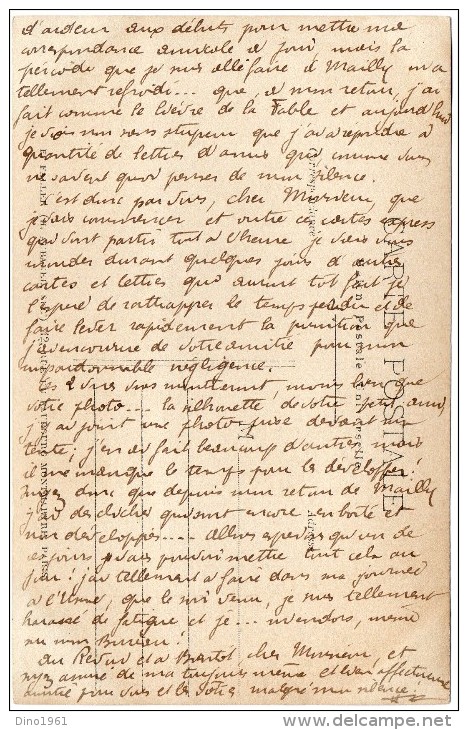 d'ardeur aux débuts pour mettre ma
correspondance amicale à jour mais la
période que je suis allé faire à Mailly m'a
tellement refroidi... que, à mon retour, j'ai
fait comme le lièvre de la Fable et aujourd'hui
je vois non sans stupeur que j'ai à répondre à
quantité de lettres d'amis qui comme vous
ne savent quoi penser de mon silence.
C'est donc par vous, cher Monsieur, que
je vais commencer et outre ces cartes express
qui sont partis tout à l'heure je vais vous
durant quelques jours d'autres
cartes et lettres qui auront tôt fait je
l'espère de rattrapper le temps perdu et de
faire lever rapidement la punition que
encourue de votre amitié pour mon
impardonnable négligence.
Les 2 vues vous montreront, moins bien que
votre photo... la silhouette de votre petit ami,
j'ai joint une photo prise devant ma
tente; j'en ai fait beaucoup d'autres mais
il me manque le temps pour les développer.
donc que depuis mon retour de Mailly
j'ai des clichés qui sont encore en boîte et
non développés... Allons espérons qu'un de
ces jours je vais pouvoir mettre tout cela au
jour! j'ai tellement à faire dans ma journée
à l'Usine, que le soir venu, je suis tellement
harassé de fatigue et je... m'endors, même
au mon Bureau!
Au Revoir et à Bientôt cher Monsieur, et
de ma toujours même et bien affectueuse
amitié pour vous et les vôtres malgré mon silence.
CARTE POSTALE
Union Postale Universelle
Correspondance
Adresse
Dino1961